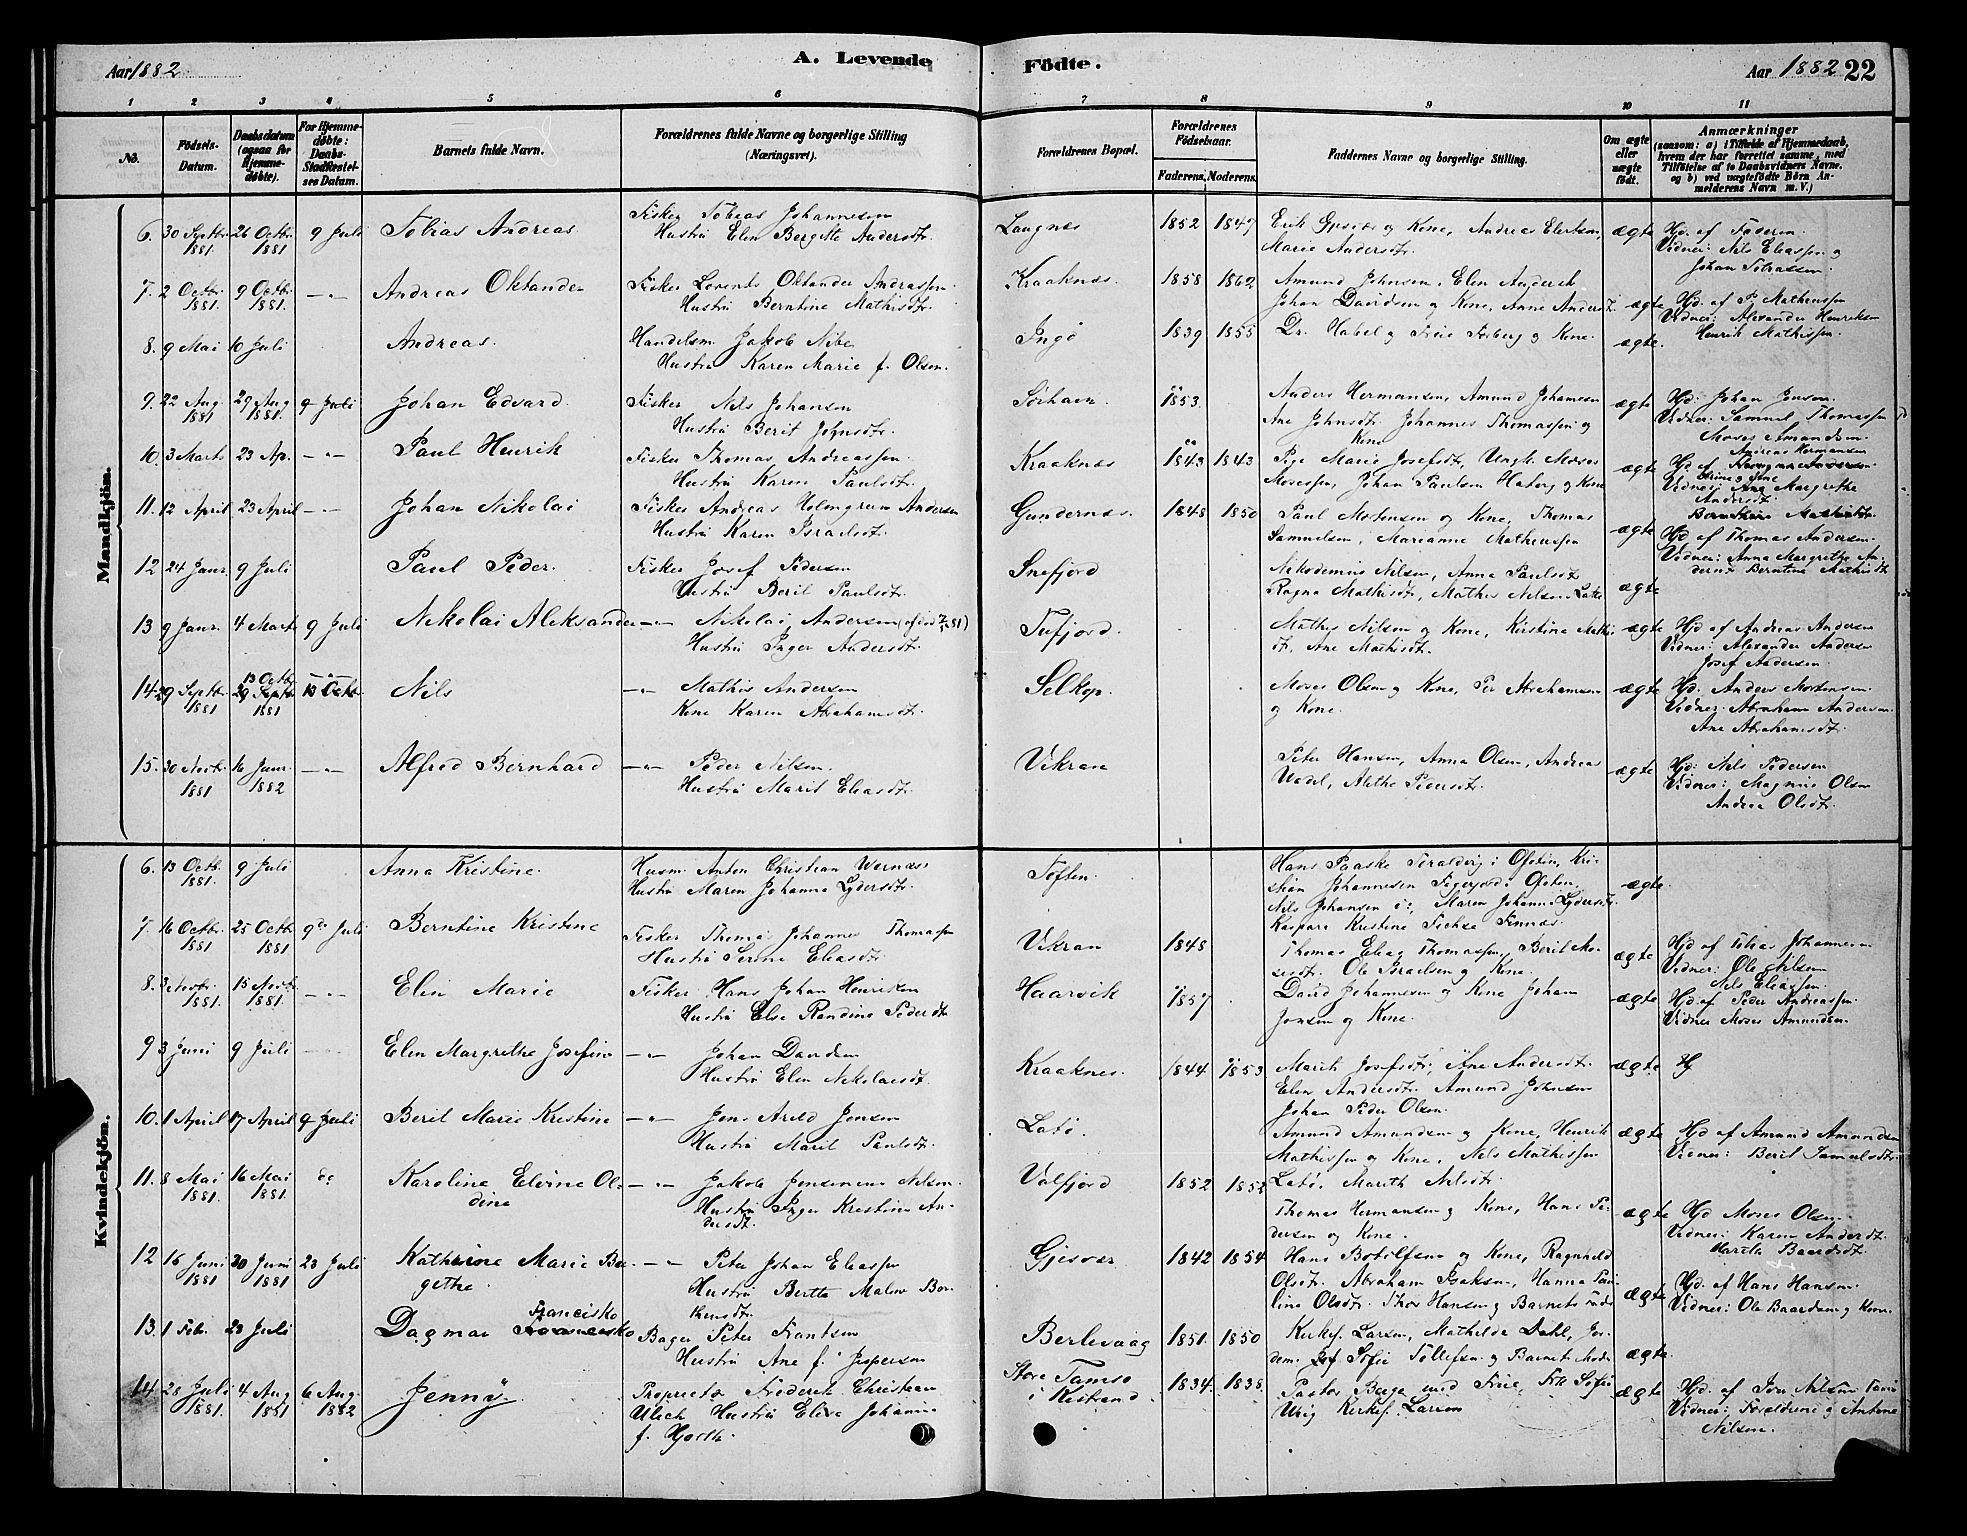 Aar 1882
A. Levende
Födte.
Aar 1882 22
1 2 3 4 5 6 7 8 9 10 11
No.
Födsels-
Datum.
Daabsdatum
(ogsaa for
Hjemme-
döbte).
For Hjemme-
döbte:
Daabs-
Stadfæstel-
ses Datum.
Barnets fulde Navn.
Forældrenes fulde Navne og borgerlige Stilling
(Næringsvei).
Forældrenes Bopæl.
Forældrenes
Födselsaar.
Faderens. Moderens.
Faddernes Navne og borgerlige Stilling.
Om ægte
eller
uægte
födt.
Anmærkninger
(saasom: a) i Tilfælde af Hjemmedaab,
hvem der har forrettet samme, med
Tilföielse af to Daabsvidners Navne,
og b) ved uægtefödte Börn An-
melderens Navn m. V.)
Mandkjön.
6. 30 Septbr 1881 26 Octbr 1881 9 Juli Tobias Andreas
Fisker Tobias Johannesen
Hustru Elen Bergitte Andersdt.
1852 1847
og Kone, Andreas
Marie Andersdt.
ægte
Hjd. af Faderen
Vidner: Nils Eliassen og
Johan
7. 2 Octbr 1881. 9 Octbr 1881. Andreas Oktander
Fisker Lorents Oktander Andreassen
Hustru Berntine Mathisdt.
Kraaknæs. 1858 1862
Amund Johnsen, Elen Andersdt
Johan Davidsen og Kone, Anne Andersdt
ægte
Hjd. af P. Matheussen
Vidner: Alexander Henriksen
Henrik Mathissen.
8. 9 Mai 10 Juli Andreas.
Handelsm Jakob
Hustru Karen Marie f. Olsen.
Ingö 1839 1855
og Kone.
ægte.
9. 22 Aug 1881 29 Aug 1881. 9 Juli Johan Edvard.
Fisker Nils Johansen
Hustru Berit Johnsdt.
1853.
Anders Hermansen, Amund Johannesen
Ane Johnsdt. Johannes Thomassen og
Kone
ægte
Hjd: Johan Jonsen
Vidner: Samuel Thomassen
Moses Amundsen.
10. 3 Marts 23 Ap. Paul Henrik
Fisker Thomas Andreassen
Hustru Karen Paulsdt.
Kraaknæs 1843 1843
Pige Marie Josefsdt, Ungk. Moses
Mosessen, Johan Paulsen og Kone
ægte
Andreas Hermansen
Vidner: Ane Margrethe
Andersdt.
11. 12 April 23 April Johan Nikolai
Fisker Andreas Holmgrum Andersen
Hustru Karen Israelsdt.
Gundernæs. 1848 1850
Paul Mortensen og Kone, Thomas
Samuelsen, Marianne Matheussen
ægte
Hjd af Thomas Andersen
Vidner: Anna Margrethe An-
dersdt Berntine Mathisdt
12 24 Janr. 9 Juli Paul Peder.
Fisker Josef Pedersen
Hustru Berit Paulsdt.
Snefjord
Nikodemus Nilsen, Anna Paulsdt
Ragna Mathisdt, Mathis Nilsen
ægte
13 9 Janr. 4 Marts 9 Juli Nikolai Aleksander
Nikolai Andersen
Hustru Inger Andersdt.
Tufjord.
Mathis Nilsen og Kone, Kirstine Mathis
dt, Ane Mathisdt.
ægte
Hjd af Andreas Andersen
Vidner: Alexander Andersen
Josef Andersen
14. 29 Septbr. 1881 13 Octbr 1881 Nils
Mathis Andersen
Kone Karen Abrahamsdt.
Selkop.
Moses Olsen og Kone, Per Abrahamsen
og Kone.
ægte
Hjd. Anders Mortensen
Vidner: Abraham Andersen
Ane Abrahamsdt.
15. 30 Novbr. 1881 16 Janr. 1882 Alfred Bernhard
Peder Nilsen.
Hustru Marit Eliasdt.
Vikran
Peter Hansen, Anna Olsen, Andreas
Alethe Pedersdt.
ægte
Hjd: Nils Pedersen
Vidner: Magnus Olsen
Andrea Olsdt.
Kvindekjön.
6. 13 Octbr. 1881. 9 Juli Anna Kristine.
Husm. Anton Christian
Hustru Maren Johanna Lydersdt.
Hans Paaske i Ofoten, Kri-
stian Johannesen i Ofoten.
Nils Johansen Maren Johanne Lydersdt.
Kaspara Kristine
ægte.
7. 16 Octbr. 1881 25 Octb 1881 9de Juli Berntine Kristine
Fisker Thomas Johannes Thomassen
Hustru Serine Eliasdt
Vikran 1848
Thomas Elias Thomassen, Berit Mo-
sesdt. Ole Israelsen og Kone.
ægte
Hjd af Tobias Johannesen
Vidner: Ole Nilsen
Nils Eliassen.
8. 3 Novbr. 1881. 15 Novbr 1881. Elen Marie
Fisker Hans Johan Henriksen
Hustru Else Randine Pedersdt.
Haarvik 1857
David Johannesen og Kone Johan
Jonsen og Kone.
ægte
Hjd. af Peder Andreassen.
Vidner Moses Amundsen.
9 3 Juni 9 Juli Elen Margrethe Josefine
Johan Davidsen
Hustru Elen Nikolaisdt.
Kraaknes. 1844. 1853
Marith Josefsdt, Ane Andersdt.
Elen Andersdt. Amund Johnsen
Johan Peder Olsen.
ægte
10. 1 April 17 April 9 Juli Berit Marie Kristine
Jens Arild Jonsen
Hustru Marit Paulsdt.
Latö.
Amund Amundsen og Kone, Henrik
Mathissen og Kone, Nils Mathissen
Latö, Marith Nilsdt.
ægte
Hjd af Amund Amundsen
Vidner: Berit Samuelsdt.
11. 8 Mai 1881. 16 Mai 1881. do Karoline Elvine Ol-
dine
Jakob Nilsen.
Hustru Inger Kristine An-
dersdt.
1852 1852
Thomas Hermansen og Kone, Hans Pe-
dersen og Kone.
ægte
Hjd Moses Olsen
Vidner: Karen Andersdt
Marith Baardsdt.
12 16 Juni 1881 30 Juni 1881 23 Juli Kathrine Marie Ber-
gethe.
Peter Johan Eliassen
Hustru Berthe Malene
Gjesvær 1842 1854
Hans Botolfsen og Kone, Ragnhild
Olsdt. Abraham Isaksen, Hanna Pau-
line Olsdt. Thor Hansen og Barnets Fader
ægte
Hjd. af Hans Hansen.
Vidner: Ole Baardsen og Kone
13. 1 Feb. 23 Juli Dagmar Francisko
Bager Peter Frantsen
Hustru Ane f. Jespersen
Berlevaag 1851. 1850
Kirkes. Larsen, Mathilde Dahl, Jor-
dem. Sofie Tollefsen og Barnets Moder
ægte.
14. 28 Juli 1881. 4 Aug 1881 6 Aug. 1882 Jenny
Proprietær Frederik Christian
Ulich Hustru Elise Johanne
f. Hjorth.
Store Tamsö
i Kistrand 1834. 1838.
Pastor Berge med Frue, Frk Sofie
Kirkes. Larsen
ægte
Hjd. af Jon Nilsen
Vidner: Forældrene og Antone
Nilsen.